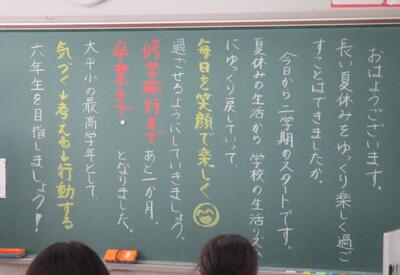 おはようございます。
長い夏休みをゆっくり楽しく過ご
すことはできましたか。
今日から二学期のスタートです。
夏休みの生活から、学校の生活リズム
にゆっくり戻していって、
毎日を笑顔で楽しく
過ごせるようにしていきましょう。
修学旅行まであと一か月、
卒業まで・　となりました。
大平小の最高学年として、
気づく→考える→行動する
六年生を目指しましょう！